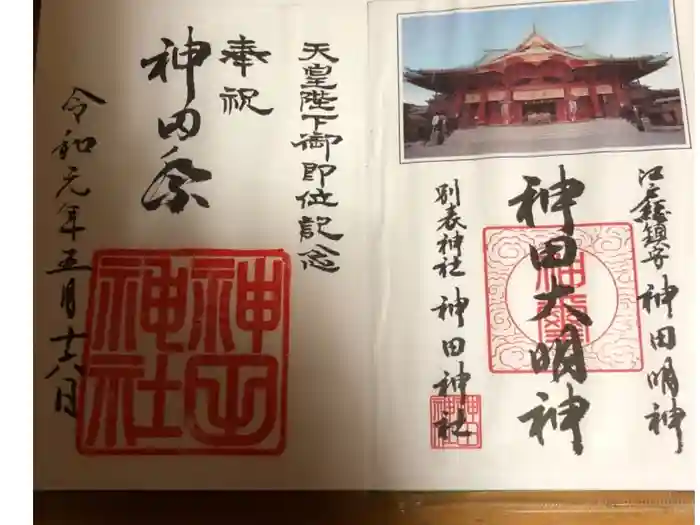 江戸総鎮守 神田明神
神田大明神
別表神社 神田神社
天皇陛下御即位記念
奉祝
神田祭
令和元年五月十六日
神田
神社